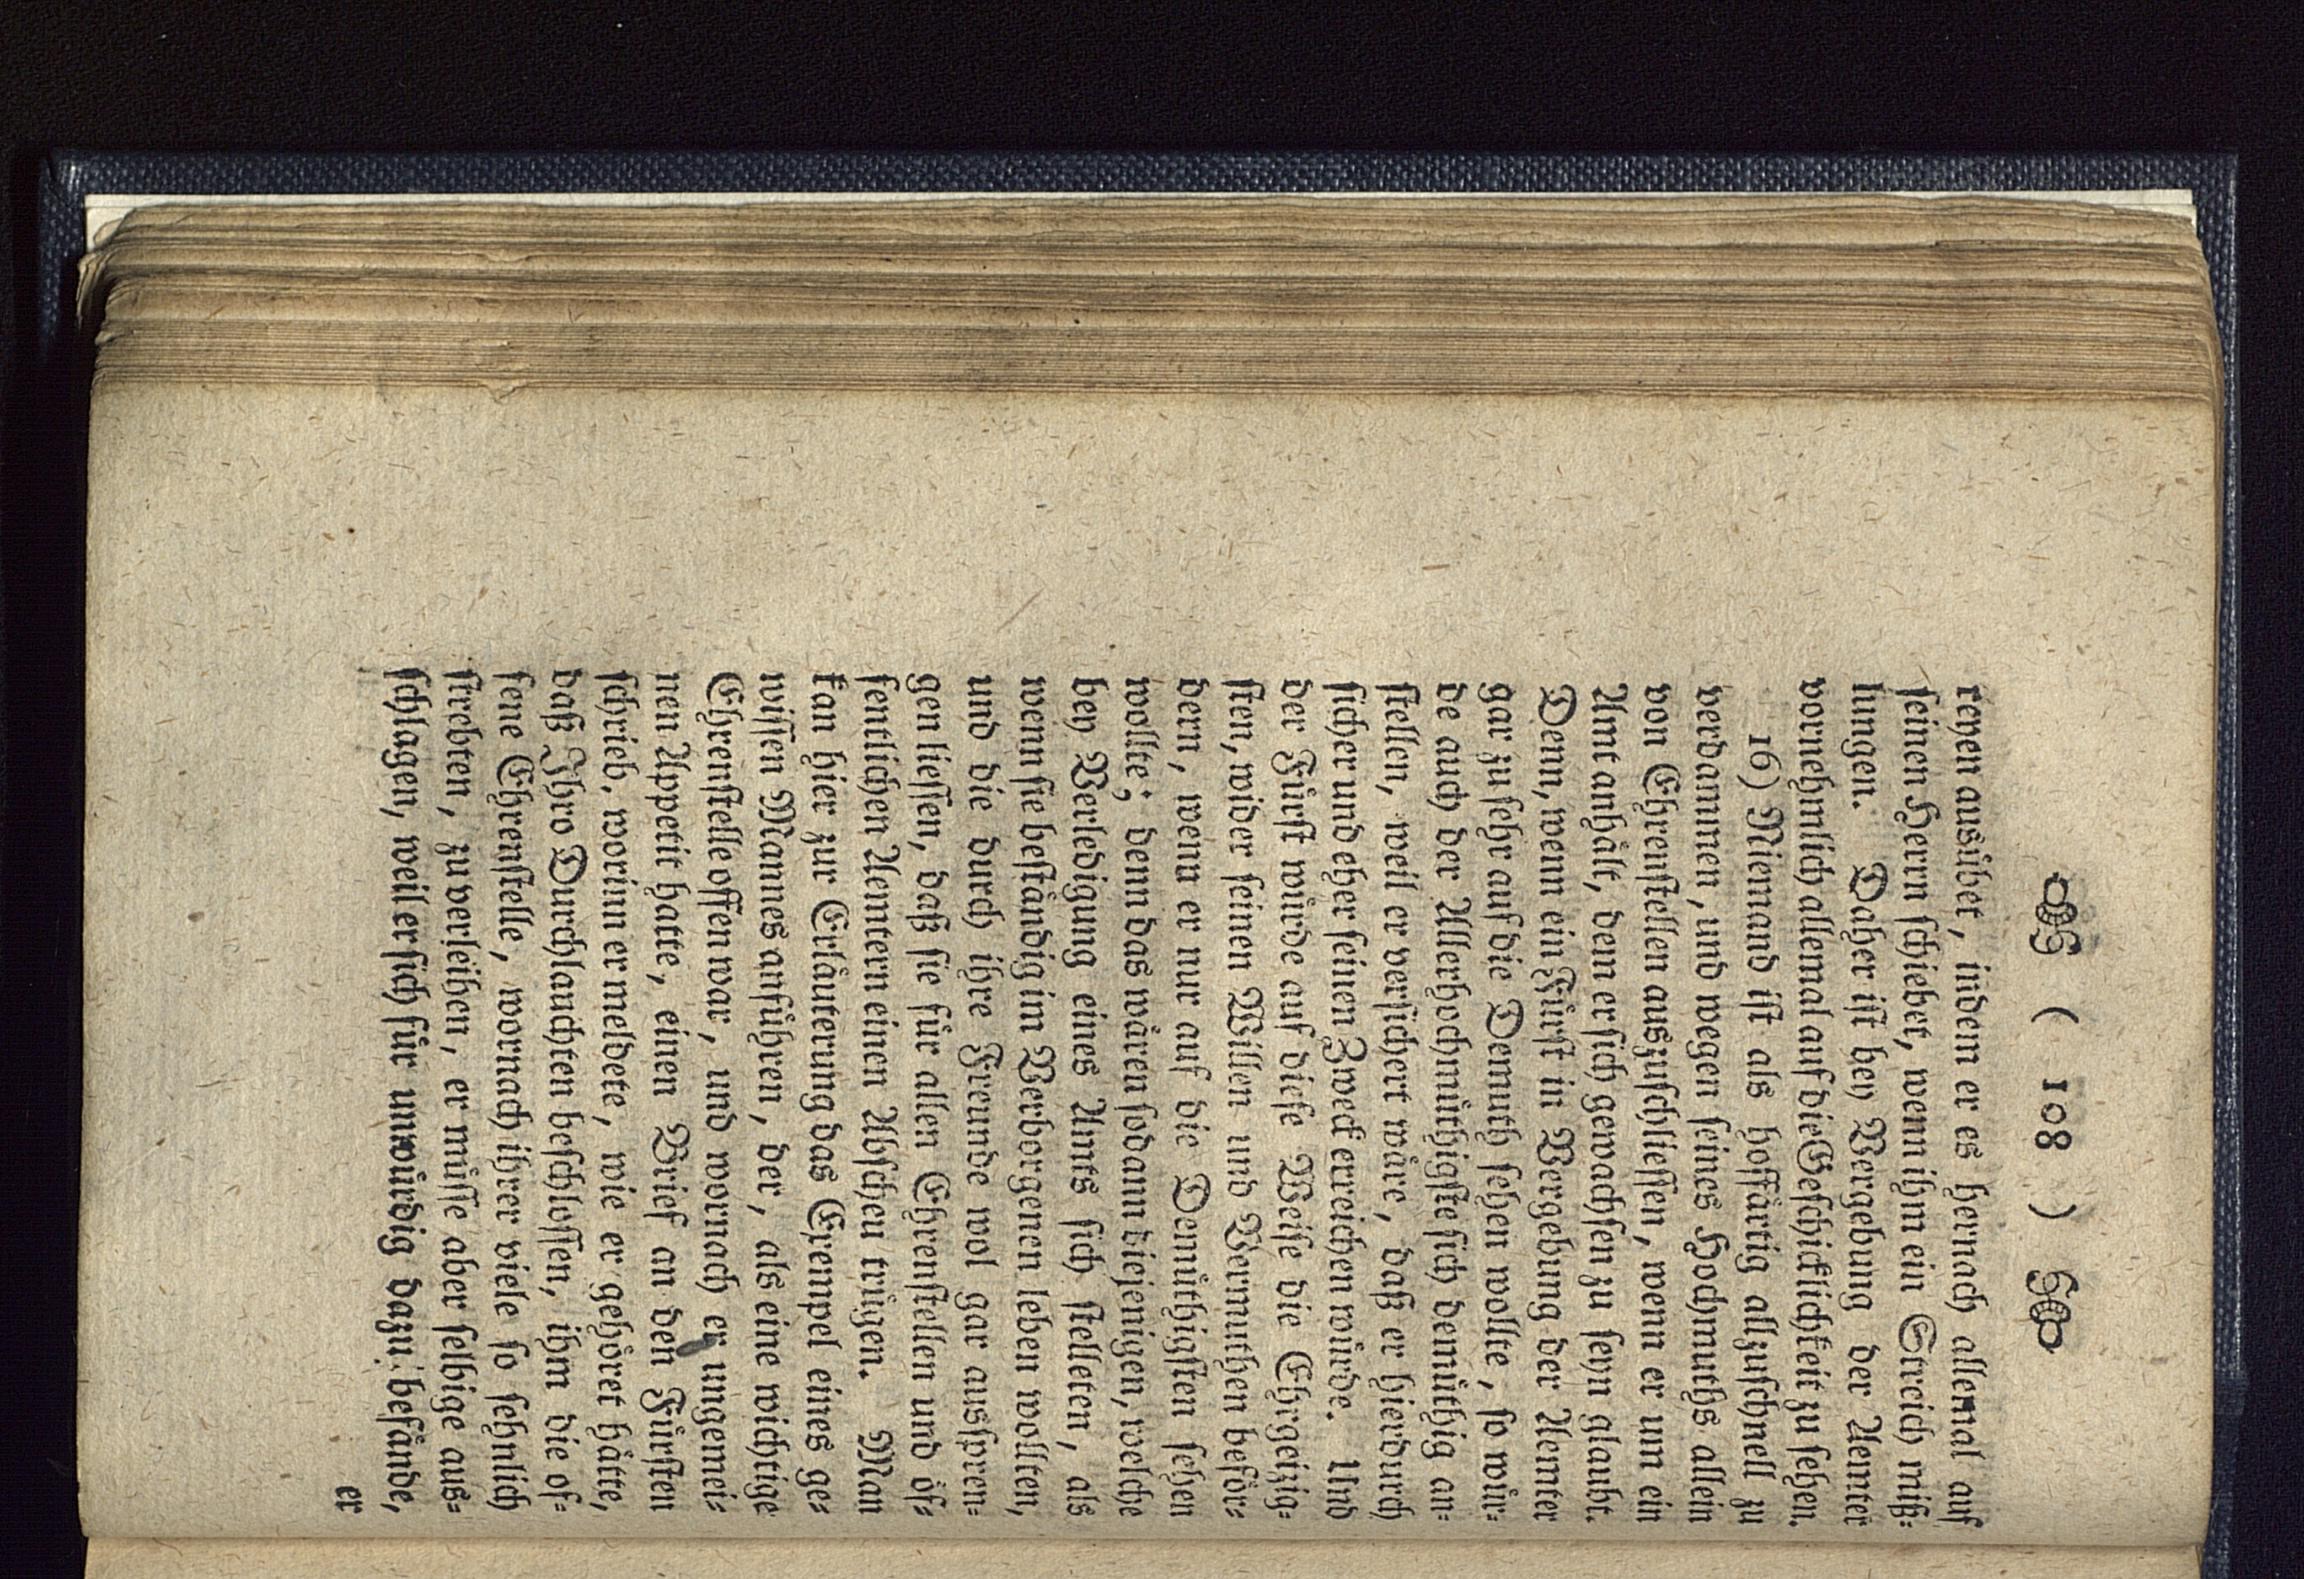 ( 108 )
reyen ausübet, indem er es hernach allemal auf
seinen Herrn schiebet, wenn ihm ein Streich miß-
lungen. Daher ist bey Vergebung der Aemter
vornehmlich allemal auf die Geschicklichkeit zu sehen.
16) Niemand ist als hoffärtig allzuschnell zu
verdammen, und wegen seines Hochmuths allein
von Ehrenstellen auszuschliessen, wenn er um ein
Amt anhält, dem er sich gewachsen zu seyn glaubt.
Denn, wenn ein Fürst in Vergebung der Aemter
gar zu sehr auf die Demuth sehen wollte, so wür-
de auch der Allerhochmüthigste sich demüthig an-
stellen, weil er versichert wäre, daß er hierdurch
sicher und eher seinen Zweck erreichen würde. Und
der Fürst würde auf diese Weise die Ehrgeizig-
sten, wider seinen Willen und Vermuthen beför-
dern, wenn er nur auf die Demüthigsten sehen
wollte; denn das wären sodann diejenigen, welche
bey Verledigung eines Amts sich stelleten, als
wenn sie beständig im Verborgenen leben wollten,
und die durch ihre Freunde wol gar aussprren-
gen liessen, daß sie für allen Ehrenstellen und öf-
fentlichen Aemtern einen Abscheu trügen. Man
kan hier zur Erläuterung das Exempel eines ge-
wissen Mannes anführen, der, als eine wichtige
Ehrenstelle offen war, und wornach er ungemei-
nen Appetit hatte, einen Brief an den Fürsten
schrieb, worinn er meldete, wie er gehöret hätte,
daß Ihro Durchlauchten beschlossen, ihm die of-
fene Ehrenstelle, wornach ihrer viele so sehnlich
strebten, zu verleihen, er müsse aber selbige aus-
schlagen, weil er sich für unwürdig dazu befände,
er